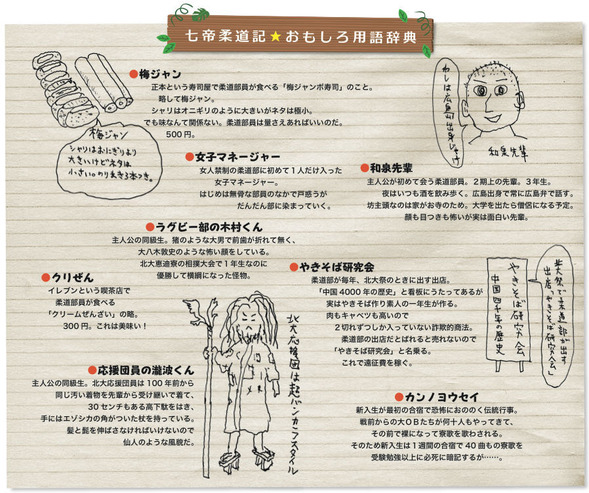 七帝柔道記★おもしろ用語辞典
●梅ジャン
正本という寿司屋で柔道部員が食べる「梅ジャンボ寿司」のこと。
略して梅ジャン。
シャリはオニギリのように大きいがネタは極小。
でも味なんて関係ない。柔道部員は量さえあればいいのだ。
500円。
梅ジャン
シャリはおにぎりより
大きいけどネタは
小さい。のり巻き3本つき。
●女子マネージャー
女人禁制の柔道部に初めて1人だけ入った
女子マネージャー。
はじめは無骨な部員のなかで戸惑うが
だんだん部に染まっていく。
わしは広島の出身じゃけ
和泉先輩
●和泉先輩
主人公が初めて会う柔道部員。2期上の先輩。3年生。
夜はいつも酒を飲み歩く。広島出身で常に広島弁で話す。
坊主頭なのは家がお寺のため。大学を出たら僧侶になる予定。
顔も目つきも怖いが実は面白い先輩。
●ラグビー部の木村くん
主人公の同級生。猪のような大男で前歯が折れて無く、
大八木敦史のような怖い顔をしている。
北大恵迪寮の相撲大会で1年生なのに
優勝して横綱になった怪物。
●クリぜん
イレブンという喫茶店で
柔道部員が食べる
「クリームぜんざい」の略。
300円。これは美味い!
●やきそば研究会
柔道部が毎年、北大祭のときに出す出店。
「中国4000年の歴史」と看板にうたってあるが
実はやきそば作り素人の一年生が作る。
肉もキャベツも高いので
2切れずつしか入っていない詐欺的商法。
柔道部の出店だとばれると売れないので
「やきそば研究会」と名乗る。
これで遠征費を稼ぐ。
やきそば研究会
中国四千年の歴史
北大祭で柔道部が出す
出店「やきそば研究会」
●応援団員の瀧波くん
主人公の同級生。北大応援団員は100年前から
同じ汚い着物を先輩から受け継いで着て、
30センチもある高下駄をはき、
手にはエゾシカの角がついた杖を持っている。
髪と髭を伸ばさなければいけないので
仙人のような風貌だ。
北大応援団は超バンカラスタイル
●カンノヨウセイ
新入生が最初の合宿で恐怖におののく伝行事。
戦前からの大OBたちが何十人もやってきて、
その前で裸になって寮歌を歌わされる。
そのため新入生は1週間の合宿で40曲もの寮歌を
受験勉強以上に必死に暗記するが……。